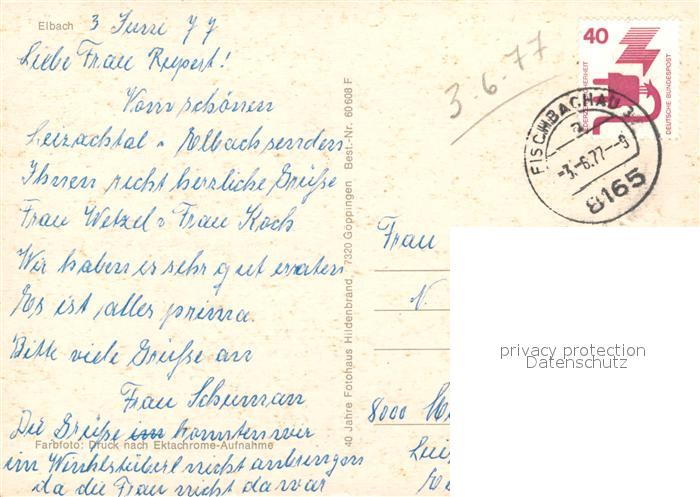 Elbach
3 Juni 77
Liebe Frau Rupert!
Vom schönen
Leizachtal u Elbach senden
Ihnen recht herzliche Grüße
Frau Wetzel u Frau Koch
Wir haben es sehr gut erraten
Es ist alles prima.
Bitte viele Grüße an
Frau Schuman
Die Grüße im konnten wir
im Winklstüberl nicht anbringen
da die Frau nicht da war
Farbfoto: Druck nach Ektachrome-Aufnahme
40 Jahre Fotohaus Hildenbrand, 7320 Göppingen Best.-Nr. 60608 F
3-6-77
40
DEUTSCHE BUNDESPOST
FISCHBACHAU
-3.-6.77--9
8165
Frau
N.
8000
privacy protection
Datenschutz